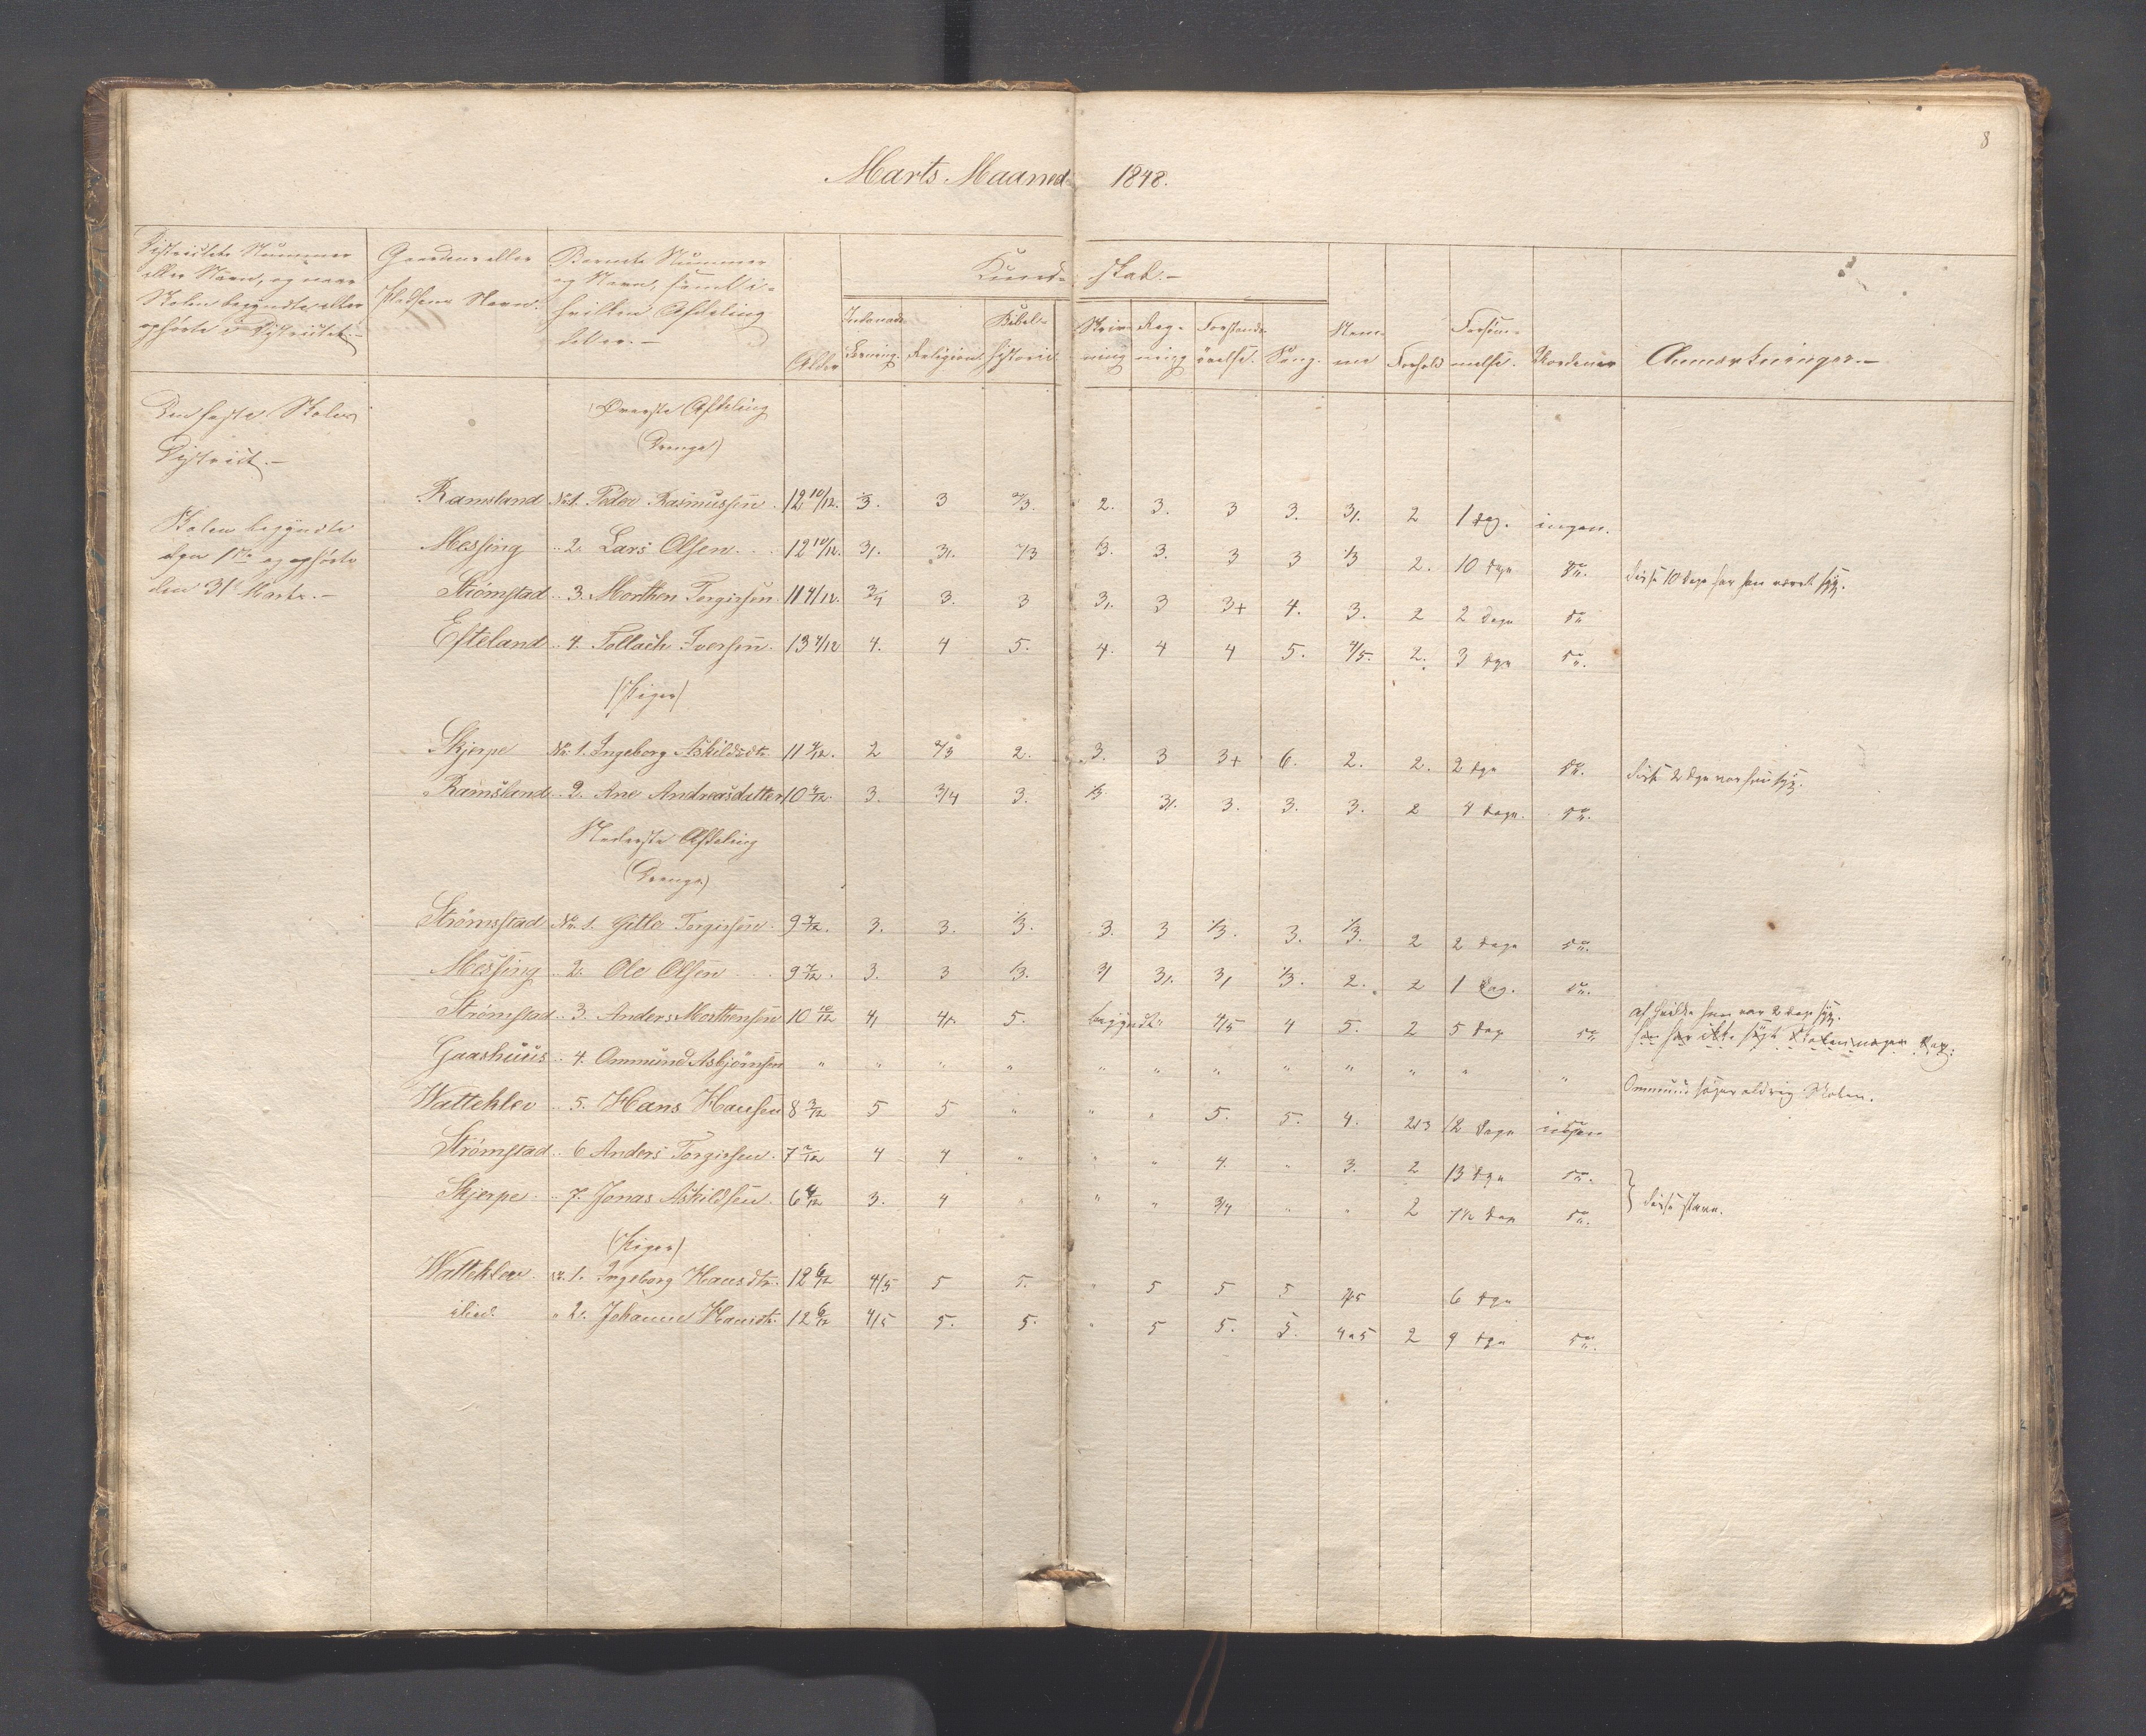 8
Marts Maaned 1848.
Districtets Nummer eller Navn, og naar Skolen begyndte eller ophørte i Districtet.-
Gaardens eller Pladsens Navn.
Barnets Nummer og Navn, samt i hvilken Afdeling det er.-
Alder
Kund- skab.-
Indenads Læsning.
Religion
Bibel- historie
Skriv- ning
Reg- ning
Forstands- øvelse.
Sang.
Nem- me
Forhold
Forsøm- melse.
Uordener
Anmærkninger.-
Den faste Skoles District.-
Skolen begyndte den 1ste og ophørte den 31 Marts.-
Øverste Afdeling
(Drenge)
Ramsland No 1. Peder Rasmussen. 12 10/12. 3. 3 2/3. 2. 3. 3 3. 3/. 2 1 dag. ingen.
Messing " 2. Lars Olsen. 12 10/12. 3/. 3/. 2/3 /3. 3. 3 3 /3 2. 10 dage do. disse 10 dage har han været syg.
Strømstad " 3. Morthen Torgiersen. 11 4/12. 3/4 3. 3 3/. 3 3+ 4. 3. 2 2 dage do
Efteland " 4. Tollach Iversen. 13 4/12 4. 4 5. 4. 4 4 5. 4/5. 2. 3 dge do.
(Piger)
Skjerpe No. 1. Ingeborg Askildsdtr. 11 9/12. 2 2/3 2. 3. 3 3+ 6. 2. 2. 2 dge do. disse 2 dge var hun syg.
Ramsland " 2. Ane Andreasdatter 10 3/12. 3. 3/4 3. /3 3/. 3. 3. 3. 2 4 dage. do.
Nederste Afdeling
(Drenge)
Strømstad No. 1. Gitle Torgiersen. 9 4/12. 3. 3. /3. 3. 3 /3. 3. /3. 2 2 dage do.
Messing " 2. Ole Olsen 9 7/12. 3. 3 /3. 3/ 3/. 3/ /3. 2. 2 1 dag. do.
Strømstad " 3. Anders Morthensen 10 10/12 4/ 4/. 5. begyndt " 4/5 4 5. 2 5 dage do af hvilke han var 2 dage syg.
han har ikke søgt Skolen nogen dag.
Gaashuus " 4. Ommund Asbjørnsen " " " " " " " " " " " " " Ommund søger aldrig Skolen.
Watteklev " 5. Hans Hansen 8 3/12 5 5 " " " 5. 5. 4. 2/3 12 dage ingen
Strømstad " 6 Anders Torgiersen. 7 2/12 4 4 " " " 4. " 3. 2 13 dge do.
Skjerpe " 7. Jonas Askildsen. 6 4/12 3. 4 " " " 3/4 " " 2 7 1/2 dage do. } disse stave.
(Piger)
Watteklev No. 1. Ingeborg Hansdtr. 12 6/12 4/5 5 5. " 5 5 5 4/5 6 dge
ibid. " 2. Johanne Hansdtr. 12 6/12 4/5 5. 5. " 5 5. 5. 4 a 5 2 9 dge do.